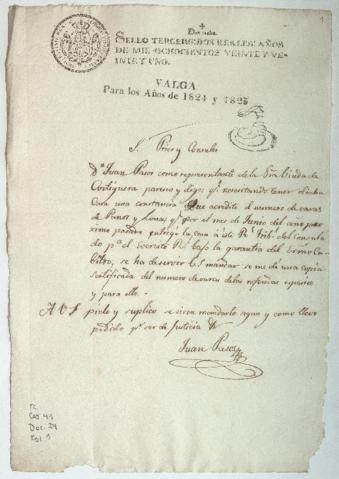 SELLO TERCERO: DOS REALES: AÑOS
DE MIL OCHOCIENTOS VEINTE Y VE-
INTE Y UNO.
VALGA
Para los Años de 1824 y 1825
S. Prior y Consules
Dn Juan Paso como representante de la Sra Viuda de
Cortiguera parezco y digo: qe necesitando tener
una constancia que acredite el numero de varas
de y Lonas, qe por el mes de Junio del año pro-
ximo pasado entregó la casa á este Rl Tribl del Consula-
do pa el Rl bajo la garantia del
se ha de servir V.S. mandar se me dé una copia
calificada del numero de varas de las referidas
y para ello
A V S pido y suplico se sirva mandarlo segun y como llevo
pedido qe ser de Justicia
Juan Paso
TC
Doc. 24